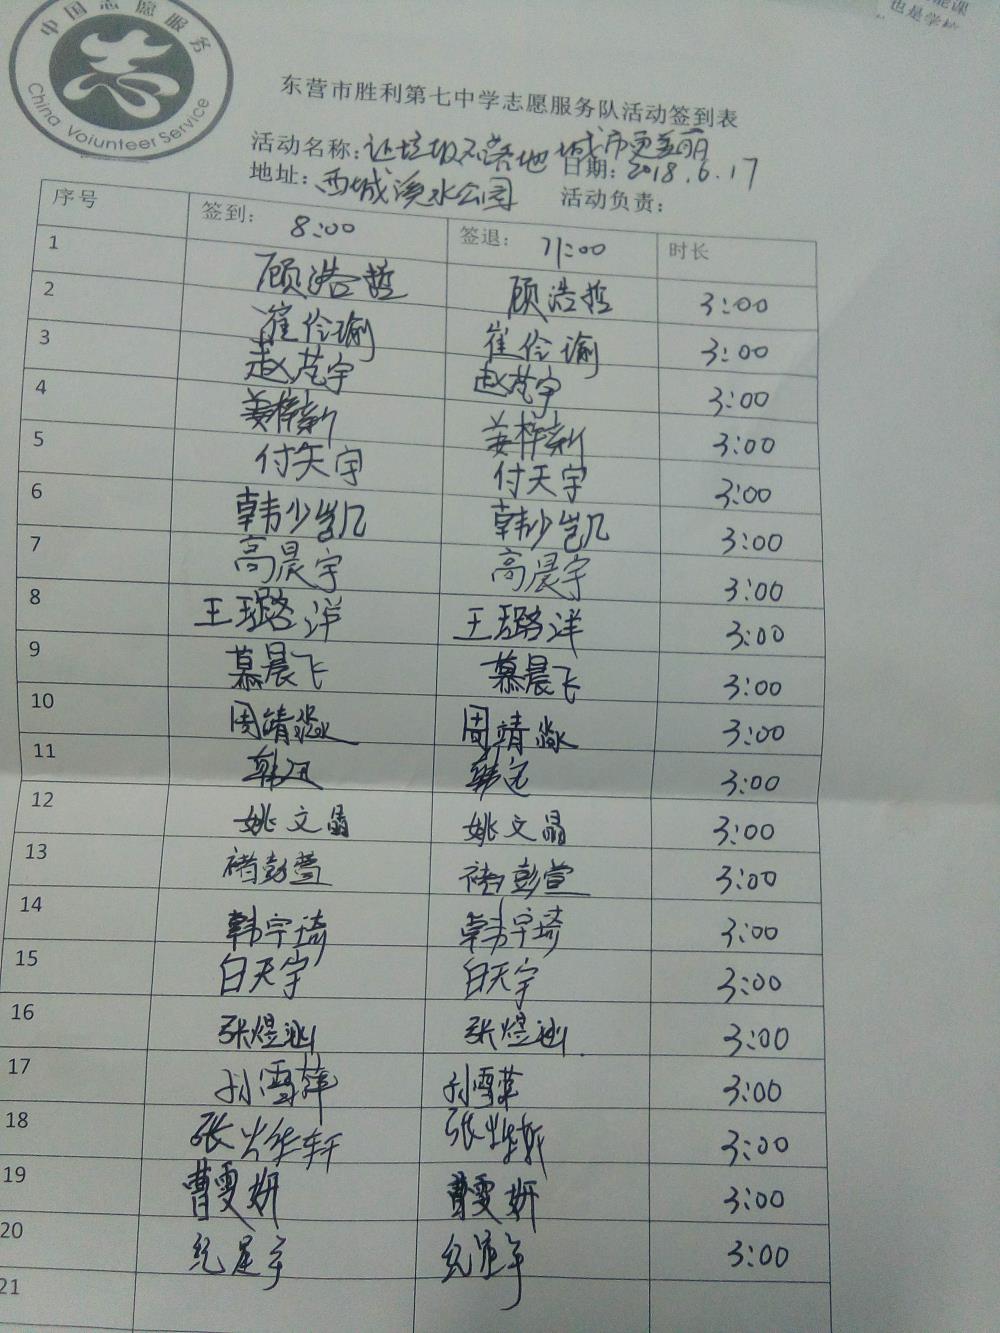 中国志愿服务
China Volunteer Service
也是学校
东营市胜利第七中学志愿服务队活动签到表
活动名称：让垃圾不落地 城市更美丽
日期：2018.6.17
地址：西城溪水公园 活动负责：
序号 签到：8:00 签退：11:00 时长
1 顾浩哲 顾浩哲 3:00
2 崔伶瑜 崔伶瑜 3:00
3 赵芃宇 赵芃宇 3:00
4 姜梓新 姜梓新 3:00
5 付天宇 付天宇 3:00
6 韩少凯 韩少凯 3:00
7 高晨宇 高晨宇 3:00
8 王璐洋 王璐洋 3:00
9 慕晨飞 慕晨飞 3:00
10 周靖淼 周靖淼 3:00
11 韩 韩 3:00
12 姚文晶 姚文晶 3:00
13 褚彭萱 褚彭萱 3:00
14 韩宇琦 韩宇琦 3:00
15 白天宇 白天宇 3:00
16 张煜 张煜 3:00
17 孙雪萍 孙雪萍 3:00
18 张烨轩 张烨轩 3:00
19 曹雯妍 曹雯妍 3:00
20 纪 纪 3:00
21